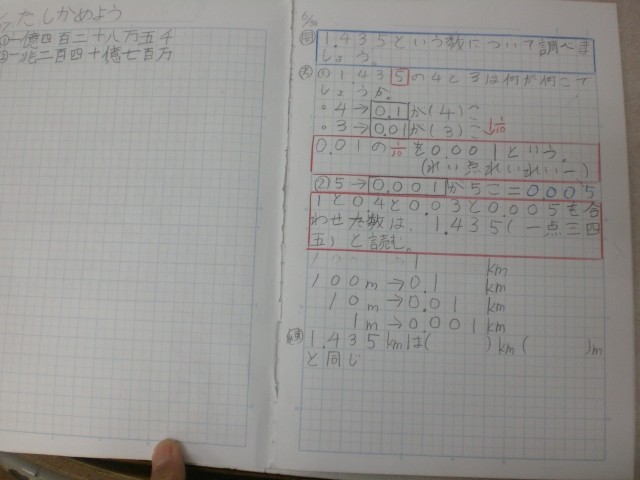 たしかめよう
①一億四百二十八万五千
②一兆二百四十億七百万
問 1.435という数について調べま
しょう。
① 1.435の4と3は何が何こで
しょうか。
・4→0.1が(4)こ
・3→0.01が(3)こ ↓1/10
0.01の1/10を0.001という。
(れい点れいれい一)
② 5→0.001が5こ=0.005
1と0.4と0.03と0.005を合
わせた数は、1.435(一点三四
五)と読む。
1 km
100m→0.1 km
10m→0.01 km
1m→0.001km
1.435kmは( )km( )m
と同じ